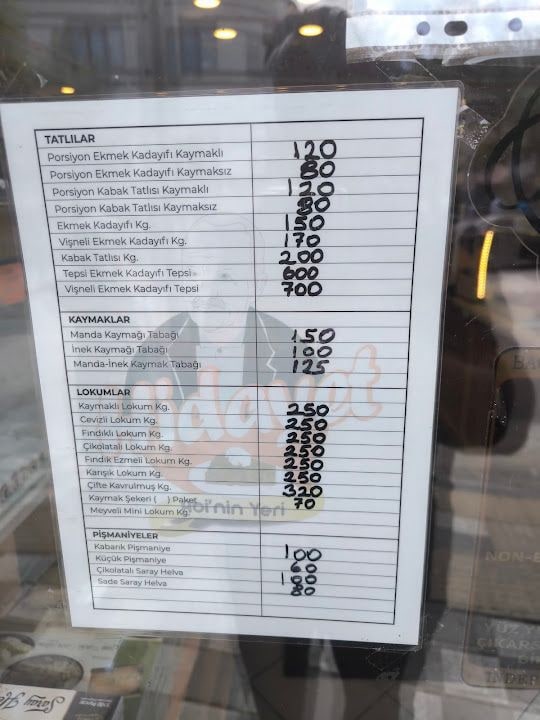 TATLILAR
Porsiyon Ekmek Kadayıfı Kaymaklı 120
Porsiyon Ekmek Kadayıfı Kaymaksız 80
Porsiyon Kabak Tatlısı Kaymaklı 120
Porsiyon Kabak Tatlısı Kaymaksız 80
Ekmek Kadayıfı Kg. 150
Vişneli Ekmek Kadayıfı Kg. 170
Kabak Tatlısı Kg. 200
Tepsi Ekmek Kadayıfı Tepsi 600
Vişneli Ekmek Kadayıfı Tepsi 700
KAYMAKLAR
Manda Kaymağı Tabağı 150
İnek Kaymağı Tabağı 100
Manda-İnek Kaymak Tabağı 125
LOKUMLAR
Kaymaklı Lokum Kg. 250
Cevizli Lokum Kg. 250
Fındıklı Lokum Kg. 250
Çikolatalı Lokum Kg. 250
Fındık Ezmeli Lokum Kg. 250
Karışık Lokum Kg. 250
Çifte Kavrulmuş Kg. 320
Kaymak Şekeri ( ) Paket 70
Meyveli Mini Lokum Kg.
PİŞMANİYELER
Kabarık Pişmaniye 100
Küçük Pişmaniye 60
Çikolatalı Saray Helva 100
Sade Saray Helva 80
Hidayet
Abi'nin Yeri
Saray